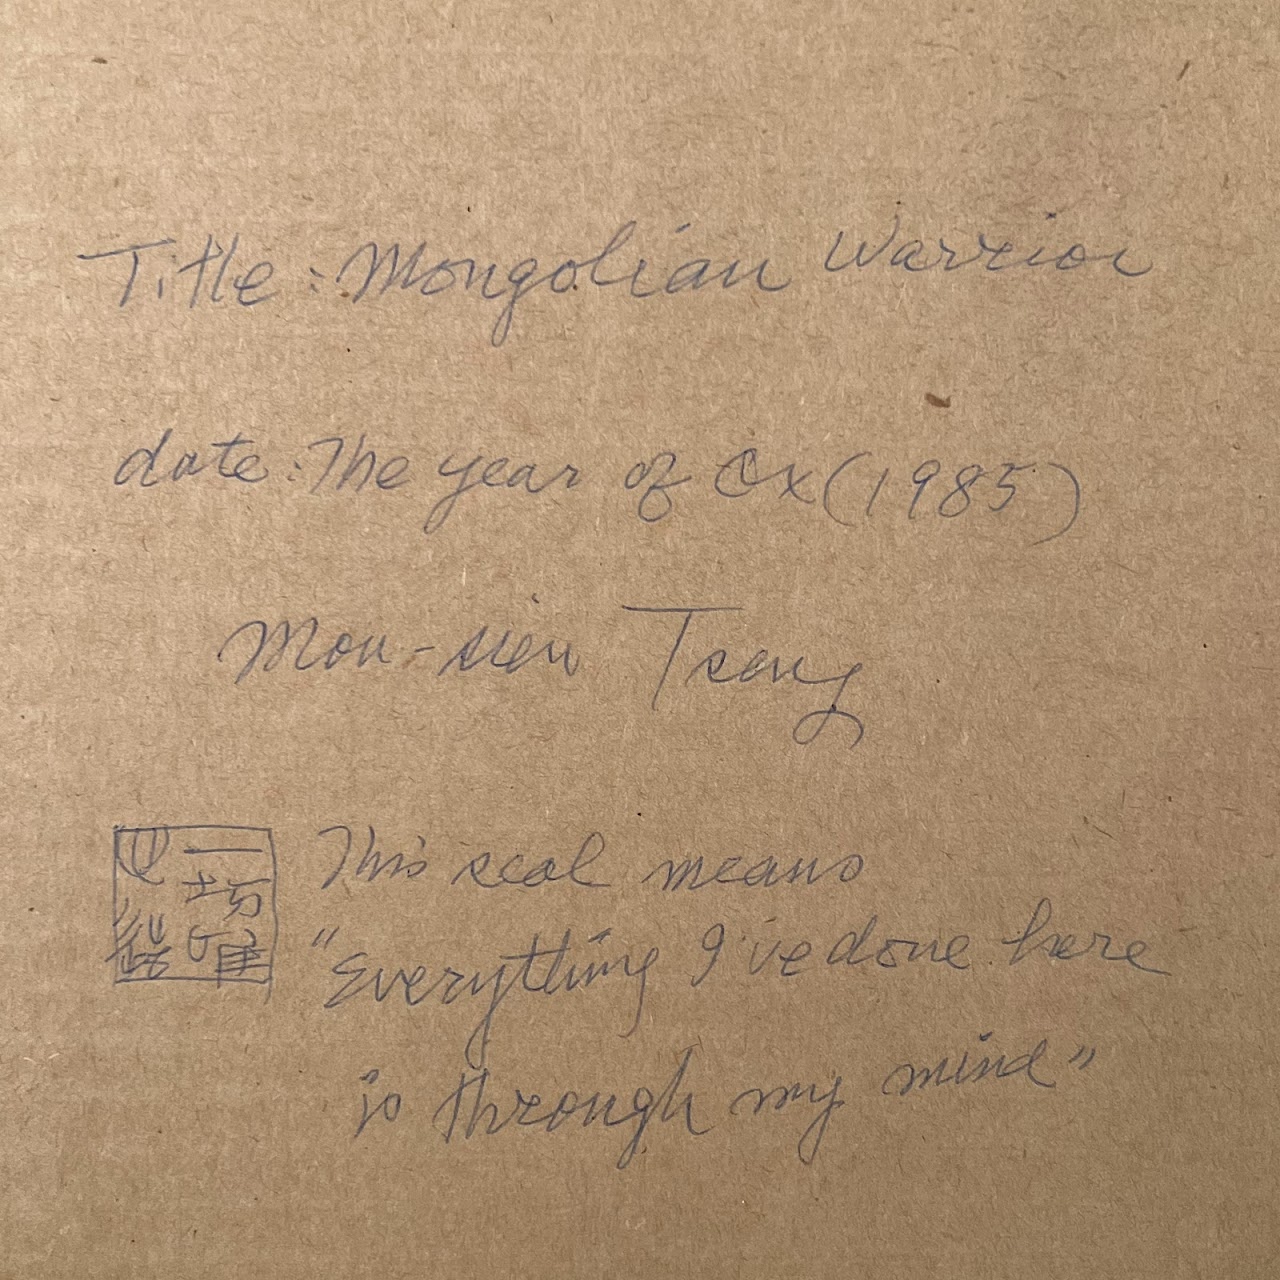 Title: Mongolian Warrior
date: The year of Ox (1985)
Mon-sien Tseng
一切唯
心造
This seal means
"Everything I've done here
is through my mind"